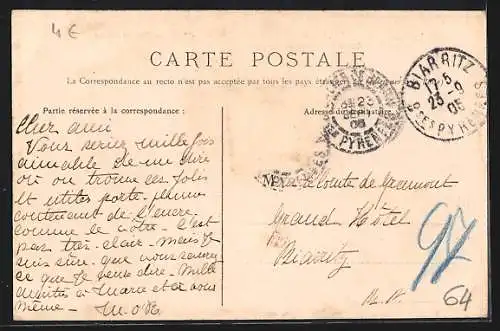 4€
CARTE POSTALE
La Correspondance au recto n'est pas acceptée par tous les pays étrangers
Partie réservée à la correspondance :
Adresse du destinataire
BIARRITZ
17-5
23 -9
05
BSES PYRENEES
23
05
PYRENEES
Cher ami
Vous seriez mille fois
aimable de me dire
où on trouve ces jolis
et utiles porte-plume
contenant de l'encre
comme le votre. C'est
pas très clair. Mais je
suis sûre que vous saurez
ce que je veux dire. Mille
amitiés à Marie et à vous
même. M. de
M
Vicomte de Gramont
Grand Hôtel
Biarritz
B. P.
97
64